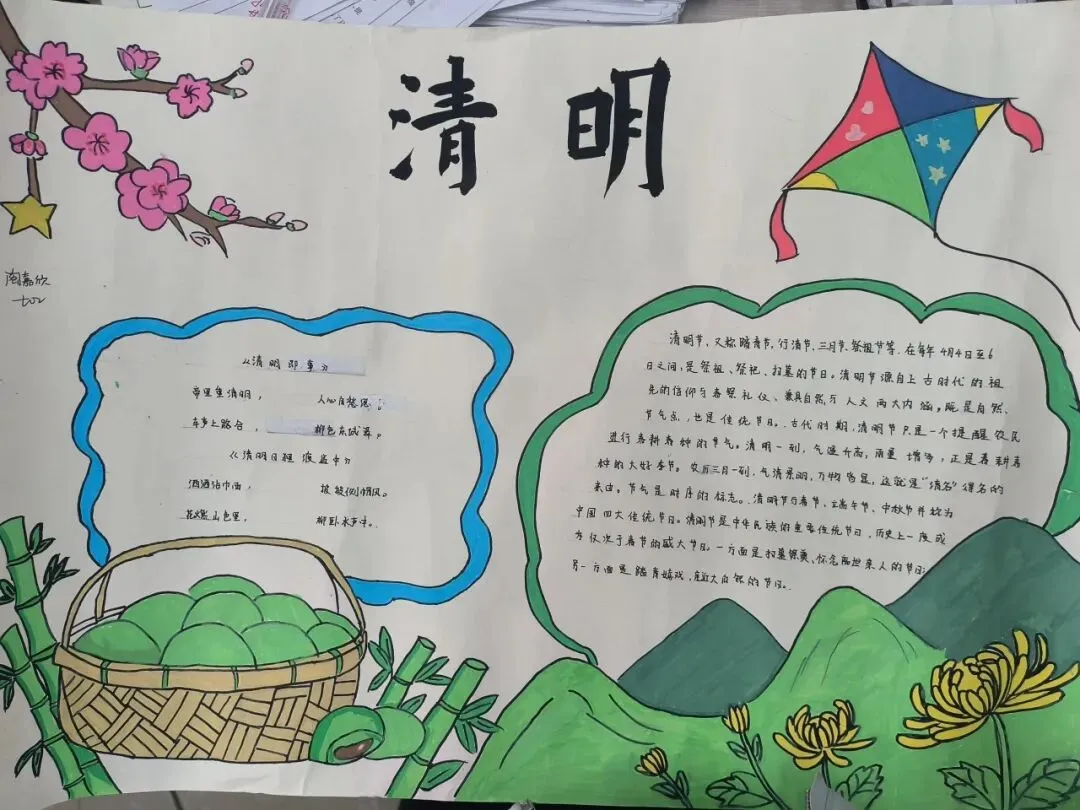 清明
陶嘉欣
七02
《清明即事》
帝里重清明， 人心自愁思。
车声上路合， 柳色东城翠。
《清明日狸渡道中》
洒洒沾巾雨， 披披侧帽风。
花燃山色里， 柳卧水声中。
清明节，又称踏青节，行清节、三月节、祭祖节等，在每年4月4日至6
日之间，是祭祖、祭祀、扫墓的节日。清明节源自上古时代的祖
先的信仰与春祭礼仪、兼具自然与人文两大内涵。既是自然、
节气点，也是传统节日。古代时期，清明节只是一个提醒农民
进行春耕春种的节气。清明一到，气温升高，雨量增多，正是春耕春
种的大好季节。农历三月一到，气清景明，万物皆显，这就是"清名"得名的
来由。节气是时序的标志。清明节与春节、端午节、中秋节并称为
中国四大传统节日。清明节是中华民族的重要传统节日，历史上一度成
为仅次于春节的盛大节日。一方面是扫墓祭奠、怀念离世亲人的节日；
另一方面是踏青嬉戏，亲近大自然的节日。